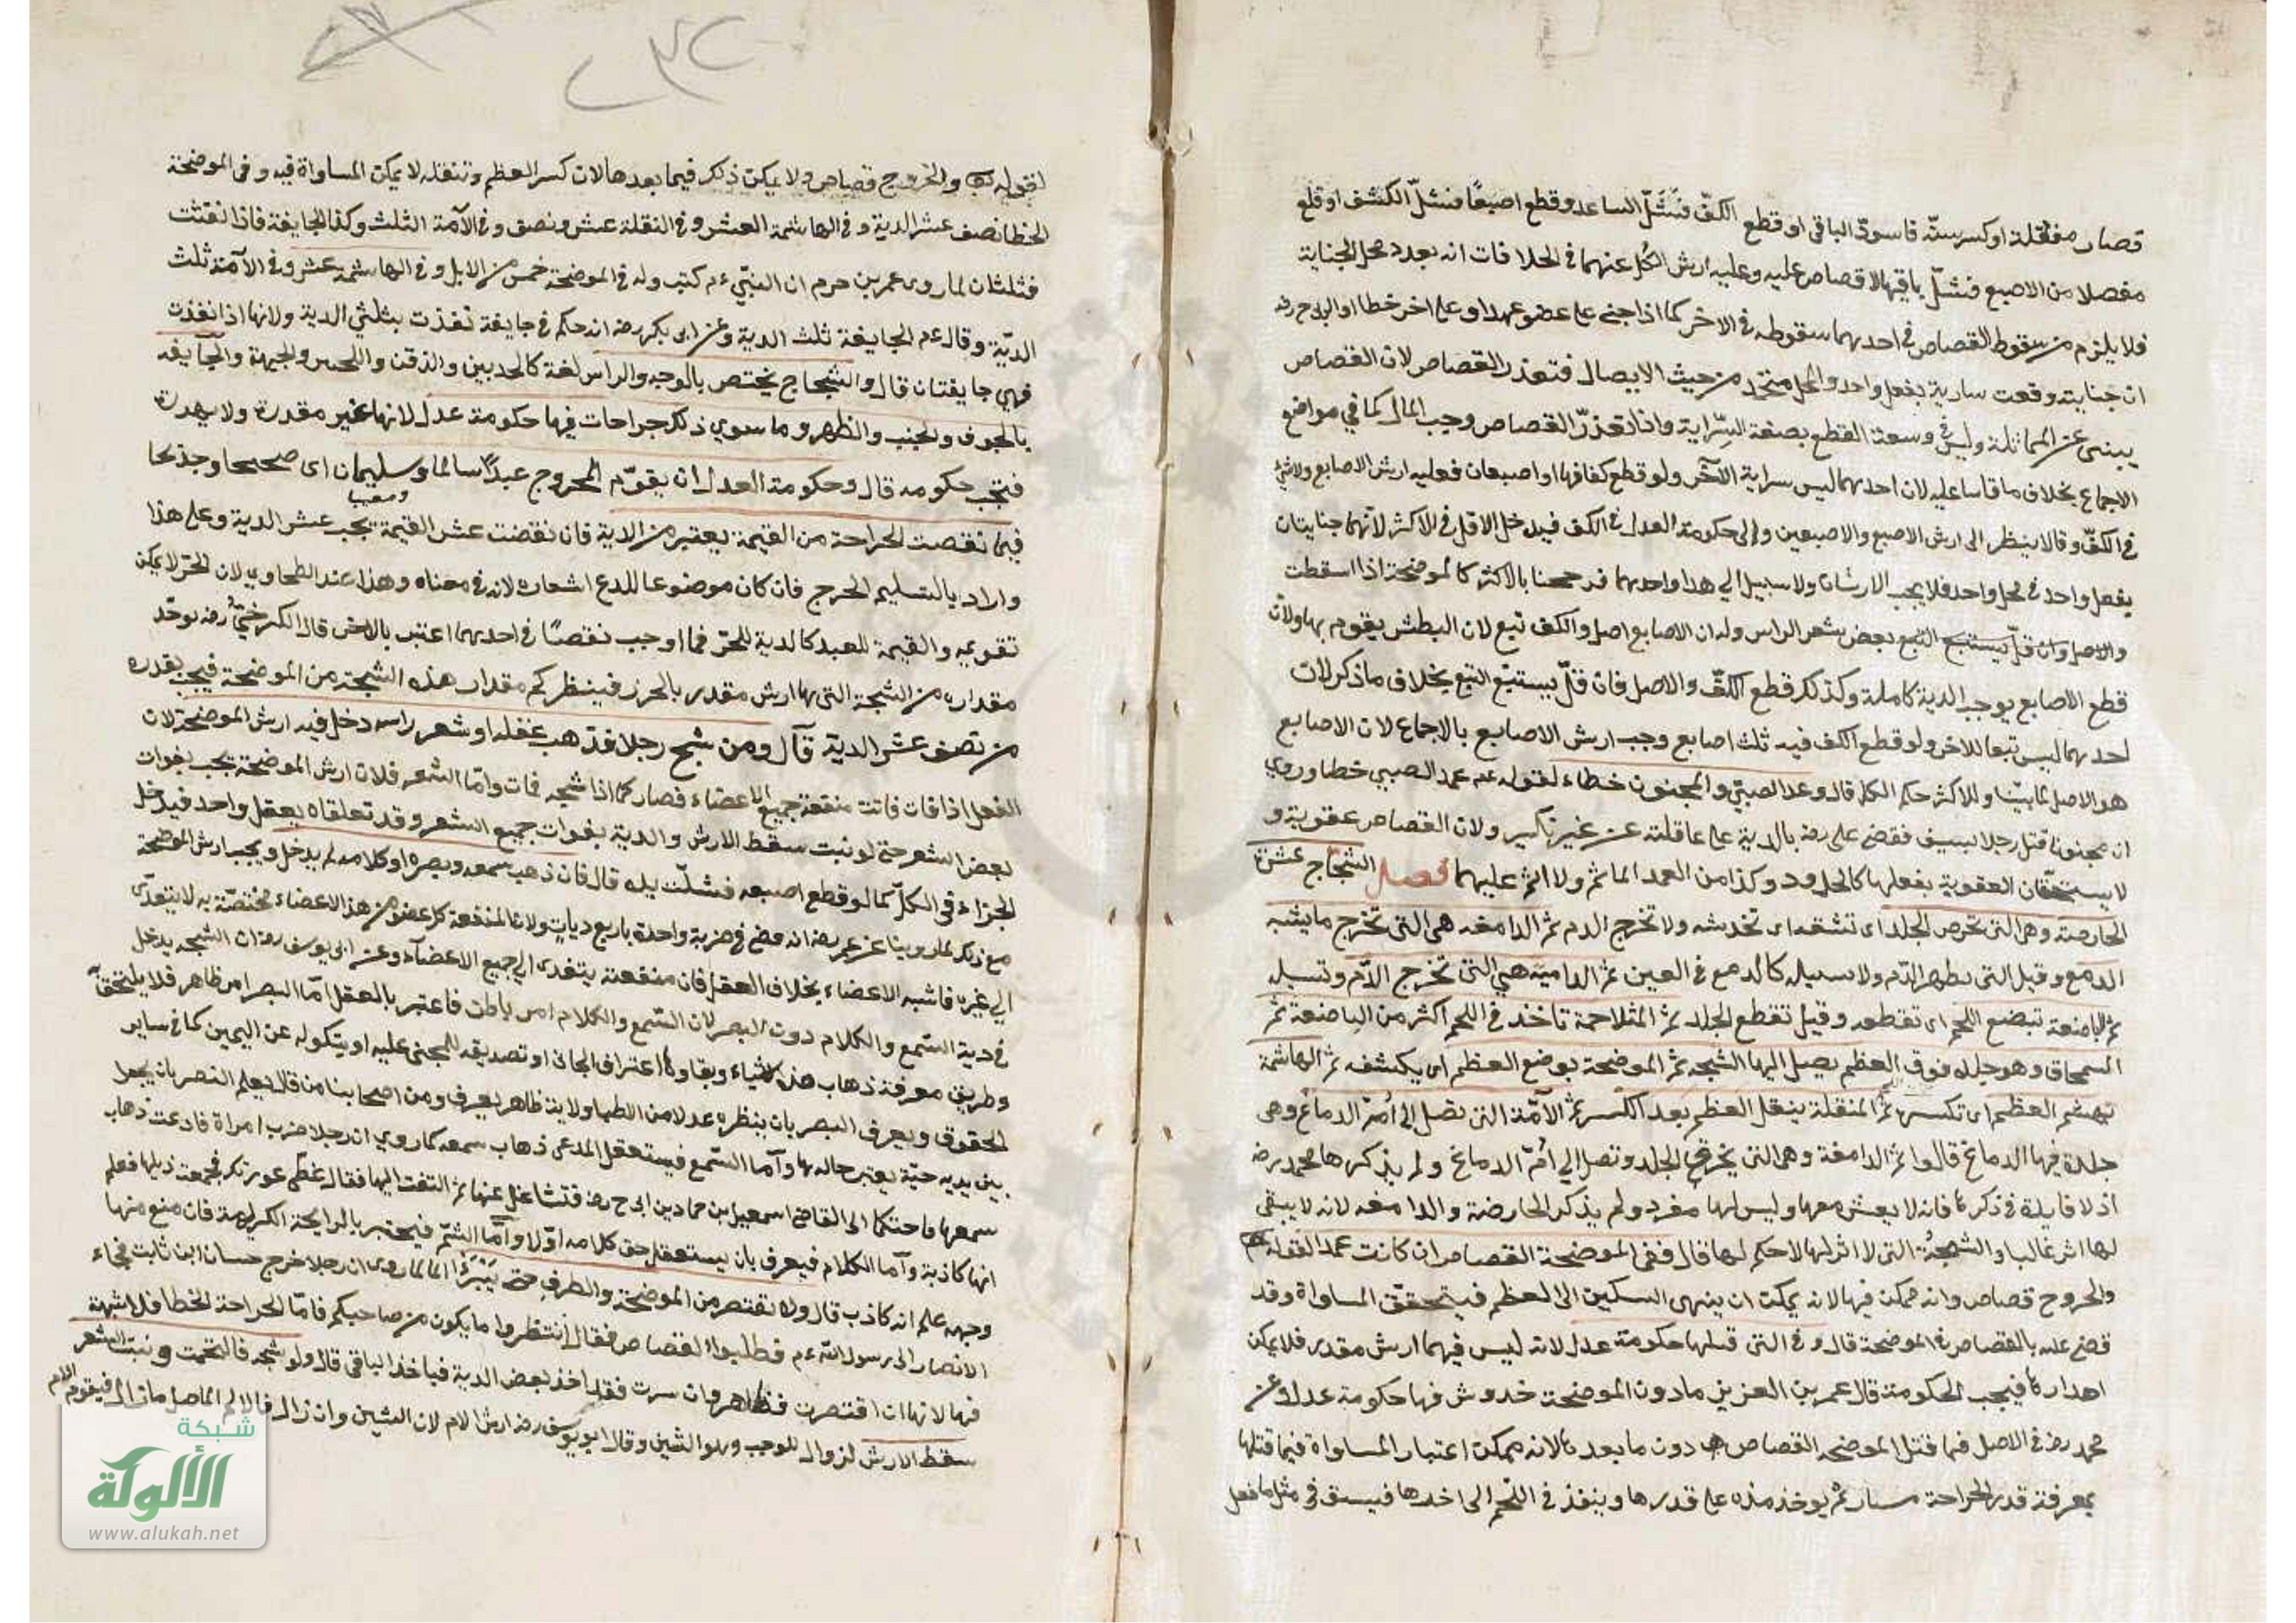 فصار منقلة او كسر سنّه فاسودّ الباقى او قطع الكفّ فشلّ الساعد وقطع اصبعًا فشلّ الكشف او قلع
مفصلا من الاصبع فشلّ باقيها لاقصاص عليه وعليه ارش الكل عنهما فى الخلافات انه بعدد محل الجناية
فلا يلزم من سقوط القصاص فى احدهما سقوطه فى الاخر كما اذا جنى على عضو عمدا وعلى اخر خطا او
ان جنايته وقعت سارية بفعل واحد والمحل متحد من حيث الايصال فتعذر القصاص لان القصاص
يبنى عن المماثلة وليس فى وسعه القطع بصفة السّراية واذا تعذرّ القصاص وجب المال كما في مواضع
الاجماع بخلاف ما قاسا عليه لان احدهما ليس سراية الآخر ولو قطع كفا فيها اصبع او اصبعان فعليه ارش الاصابع ولا شئ
فى الكفّ وقالا ينظر الى ارش الاصبع والاصبعين والى حكومة العدل فى الكف فيدخل الاقل فى الاكثر لانهما جنايتان
بفعل واحد فى محل واحد فلا يجب الارشان ولا سبيل الي هدا واحدهما فرجحنا بالاكثر كالموضحة اذا اسقطت
والاصل وان قلّ يستتبع التبع بعض شعر الراس وله ان الاصابع اصل والكف تبع لان البطش يقوم بها ولان
قطع الاصابع يوجب الدية كاملة وكذلك قطع الكفّ والاصل فان قلّ يستتبع التبع بخلاف ما ذكر لان
احدهما ليس تبعا للاخر ولو قطع الكف فيه ثلث اصابع وجب ارش الاصابع بالاجماع لان الاصابع
هو الاصل لما بيّنا وللاكثر حكم الكل قال وعمد الصبيّ والمجنون خطاء لقوله عم عمد الصبي خطا وروي
ان مجنونا قتل رجلا بسيف فقضى على رضه بالدية على عاقلته عن غير نكير ولان القصاص عقوبة و
لا يستحقّان العقوبة بفعلهما كالحدود وكذا من العمد الماثم ولا اثم عليهما فصل الشجاج عشرة
الحارصة وهى التى تحرص الجلد اى تشقه اى تخدشه ولا تخرج الدم ثم الدامعه هى التى تخرج ما يشبه
الدمع وقيل التى يظهر الدّم ولا يسيله كالدمع فى العين ثم الدامية هي التى تخرج الدّم وتسيله
ثم الباضعة تبضع اللحم اى تقطعه وقيل تقطع الجلد ثم المتلاحمة تاخذ فى اللحم اكثر من الباضعة ثم
السمحاق وهو جلده فوق العظم يصل اليها الشجه ثم الموضحة يوضع العظم اى يكشفه ثم الهاشمة
تهشم العظم اى تكسره ثم المنقلة ينقل العظم بعد الكسر ثم الآمّة التى تصل إلى أمّ الدماغ وهى
جلدة فيها الدماغ قالوا ثم الدامغة وهى التى يخرق الجلد وتصل الي أمّ الدماغ ولم يذكرها محمد رضه
اذ لا فايدة فى ذكرها فانه لا يعش معها وليس لها مفرد ولم يذكر الحارضة والدامغه لانه لا يبقى
لها اثر غالبا والشجة التى لا اثر لها لا حكم لها قال ففى الموضحة القصاص ان كانت عمدا لقوله
والجروح قصاص وانه ممكن فيها لانه يمكن ان ينهى السكين الى العظم فيتحقق المساواة وقد
قضى علم بالقصاص فى الموضحة قال وفى التى قبلها حكومة عدل لانه ليس فيهما ارش مقدر فلا يمكن
اهدارها فيجب الحكومة قال عمر بن العزيز ما دون الموضحة خدوش فيها حكومة عدل وعن
محمد رضه فى الاصل فيما قبل الموضحه القصاص دون ما بعدها لانه ممكن اعتبار المساواة فيما قبلها
بمعرفة قدر الجراحة مسبار ثم يوخذ مذه على قدرها وينفذ فى اللحم الى اخدها فيستوفى مثل ما فعل
لقوله تع والجروح قصاص ولا يمكن ذلك فيما بعدها لان كسر العظم وتنقله لا يمكن المساواة فيه وفى الموضحة
الخطا نصف عشر الدية وفى الهاشمة العشر وفى النقلة عشر ونصف وفى الآمة الثلث وكذا الجايفة فاذا نفثت
فثلثان لما روى عمر بن حرم ان النبيّ ءم كتب وله فى الموضحة خمس من الابل وفى الهاشمة عشر وفى الآمة ثلث
الديّة وقال ءم الجايفة ثلث الدية وعن ابى بكر رضه انه حكم فى جايفة نفذت بثلثي الدية ولانها اذا نفذت
فهي جايفتان قال والشجاج يختص بالوجه والراس لغة كالخدبين والذقن واللحيين والجبهة والجآيفه
بالجوف والجنب والظهر وما سوي ذلك جراحات فيها حكومة عدل لانها غير مقدرة ولا يهدرة
فتجب حكومه قال وحكومة العدل ان يقوّم المجروح عبداً سالما وسليمان اى صحيحا وجذيحا
ومعيبا
فيما نقصت الجراحة من القيمة يعتبر من الاية فان نقضت عشر القيمة تجب عشر الدية وعلى هذا
واراد بالتسليم الجرح فان كان موضوعا للدع اشعاره لانه فى معناه وهذا عند الطحاوي لان الحرّ لا يمكن
تقويمه والقيمة للعبد كالدية للحرّ فما اوجب نقصًا فى احدهما اعتبر بالاخر قال الكرخيّ رضه يوخد
مقداره من الشجة التى بها ارش مقدر بالحرز فينظر كم مقدار هذه الشجة من الموضحة فيجب بقدره
من نصف عشر الدية قآل ومن شج رجلا فذهب عقله او شعر راسه دخل فيه ارش الموضحة لان
الفعل اذا فات فاتت منفعة جميع الاعضاء فصار كما اذا شجه فمات وامّا الشعر فلان ارش الموضحة يجب بفوات
بعض الشعر حتى لو نبت سقط الارش والدية بفوات جميع الشعر وقد تعلقاه بعقل واحد فيدخل
الجزاء فى الكلّ كما لو قطع اصبعه فشلّت يده قال فان ذهب سمعه وبصره او كلامه لم يدخل ويجب ارش الموضحة
مع ذلك لما روينا عن عمر رضه انه قضى فى ضربة واحدة باربع ديات ولان المنفعة كل عضو من هذ الاعضاء مختصّة به لا يتعدّى
الي غيره فاشبه الاعضاء بخلاف العقل فان منفعته يتعدى الي جميع الاعضاء وعن ابى يوسف رضه ان الشجه يدخل
فى دية السّمع والكلام دون البصر لان السّمع والكلام امر باطن فاعتبر بالعقل امّا البصر امر ظاهر فلا يلتحق
وطريق معرفة ذهاب هذه الاشياء وبقاوها اعتراف الجانى او تصديقه للمجنى عليه او بنكوله عن اليمين كما فى ساير
الحقوق ويعرف البصر بان ينظره عدلان من الاطبا ولاية ظاهر يعرف ومن اصحابنا من قال يعلم البصر بان يجعل
بين يديه حيّة يعتبر حاله بها وآما السّمع فيستعقل المدعى ذهاب سمعه كما روي ان رجلا ضرب امراة فادعت ذهاب
سمعها فاحتكما الى القاضى اسمعيل بن حماد بن ابى ح رضه فتشاغل عنها ثم التفت اليها فقال غطى عورتك فجمعت ذيلها فعلم
انها كاذبة وآما الكلام فيعرف بان يستعقل حق كلامه اوّلا وآمّا الشمّ فيختبر بالرايحة الكريهة فان منع منها
وجهه علم انه كاذب قال ولا نقتص من الموضحة والطرف حتى يَبْرَأَ لما روى ان رجلا خرج حسان ابن ثابت فجاء
الانصار الى رسول الله ءم فطلبوا القصاص فقال انتظروا ما يكون من صاحبكم فامّا الجراحة الخطا فلا شبهة
فيها لانها ان اقتصرت فظاهر وان سرت فقد اخذ بعض الدية فياخذ الباقى قال ولو شجه فالتحمت ونبت الشعر
سقط الارش لزوال الموجب وهو الشين وقال ابو يوسف رضه ارش الالم لان الشين وان زال فالالم الحاصل ما زال فيقوم الالم
شبكة
الألوكة
www.alukah.net